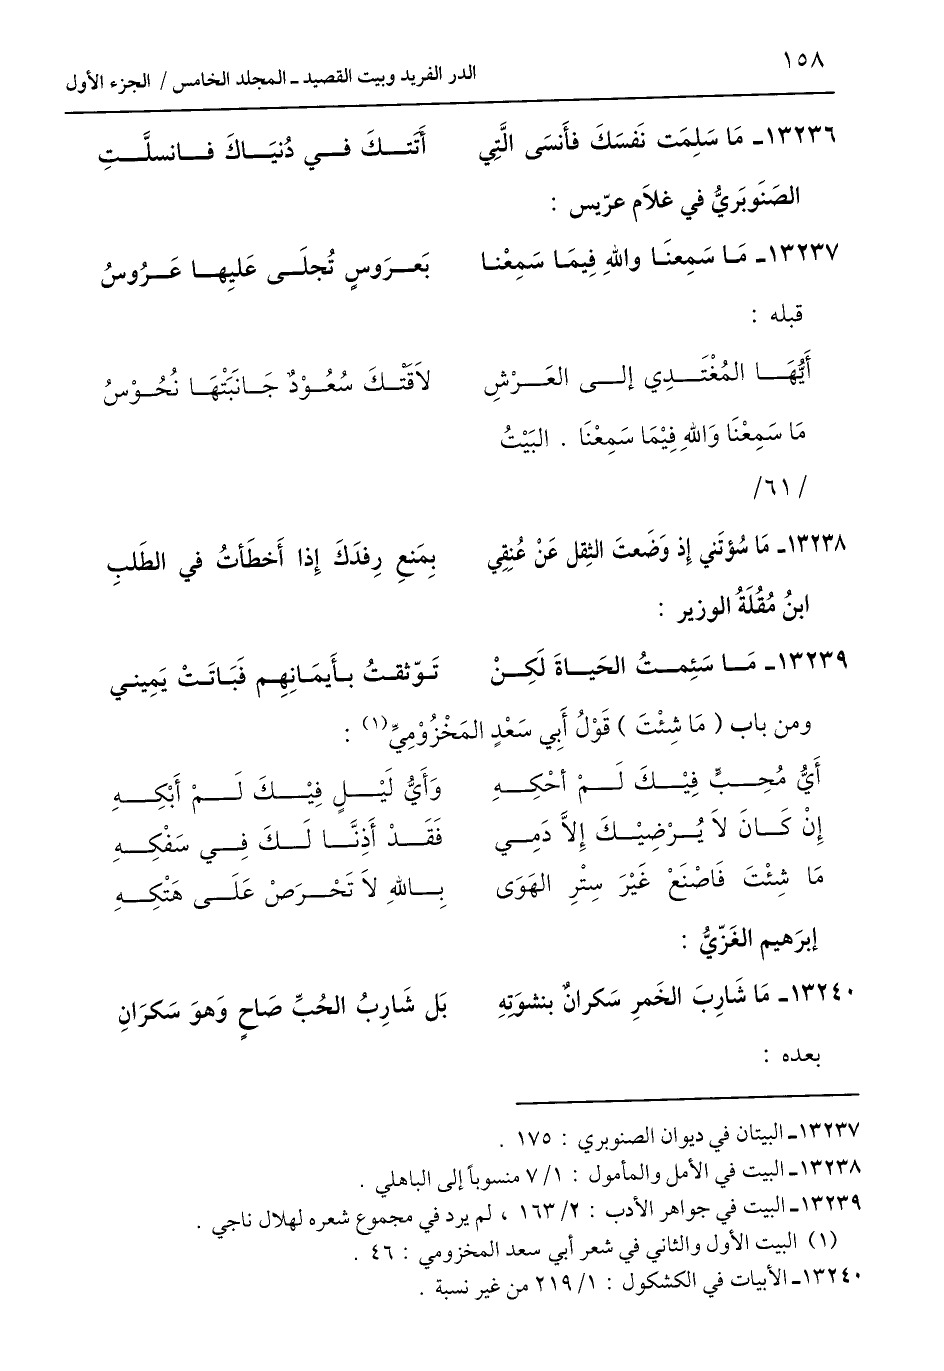 ١٥٨
الدر الفريد وبيت القصيد ـ المجلد الخامس / الجزء الأول
١٣٢٣٦ـ مَا سَلِمَت نَفسَكَ فأَنسَى الَّتِي أَتَتكَ في دُنيَاكَ فانسلَّتِ
الصَنَوبَريُّ في غلاَم عرّيس :
١٣٢٣٧ـ مَا سَمِعنَا واللهِ فِيمَا سَمِعْنا بَعرَوسٍ تُجلَى عَليِها عَرُوسُ
قبله :
أَيُّهَا المُغْتَدِي إلى العَرْشِ لاَقَتْكَ سُعُوْدٌ جَانَبَتْهَا نُحُوْسُ
مَا سَمِعْنَا وَاللهِ فِيْمَا سَمِعْنَا . البَيْتُ
/ ٦١/
١٣٢٣٨ـ مَا سُؤتَني إذ وَضَعتَ الثِقل عَنْ عُنِقِي بِمَنعِ رِفدَكَ إذا أَخطَأتُ في الطَلبِ
ابنُ مُقُلَةُ الوزير :
١٣٢٣٩ـ مَا سَئِمتُ الحَياةَ لَكِنْ تَوّثقتُ بأيمَانِهِم فَبَاتَتْ يَمِيني
ومن باب ( مَا شِئْتَ ) قَوْلُ أَبِي سَعْدٍ المَخْزُوْمِيِّ(١) :
أَيُّ مُحِبٍّ فِيْكَ لَمْ أحْكِهِ وَأَيُّ لَيْلٍ فِيْكَ لَمْ أَبْكِهِ
إنْ كَانَ لاَ يُرْضِيْكَ إلاَّ دَمِي فَقَدْ أَذِنَّا لَكَ فِي سَفْكِهِ
مَا شِئْتَ فَاصْنَعْ غَيْرَ سِتْرِ الهَوَى بِاللهِ لاَ تَحْرَصْ عَلَى هَتْكِهِ
إبرَهيم الغَزّيُّ :
١٣٢٤٠ـ مَا شَارِبَ الخَمرِ سَكرانٌ بنشوَتِهِ بَل شَارِبُ الحُبِّ صَاحٍ وَهوَ سَكرَانِ
بعده :
١٣٢٣٧ـ البيتان في ديوان الصنوبري : ١٧٥ .
١٣٢٣٨ـ البيت في الأمل والمأمول : ١/ ٧ منسوباً إلى الباهلي .
١٣٢٣٩ـ البيت في جواهر الأدب : ٢/ ١٦٣ ، لم يرد في مجموع شعره لهلال ناجي .
(١) البيت الأول والثاني في شعر أبي سعد المخزومي : ٤٦ .
١٣٢٤٠ـ الأبيات في الكشكول : ١/ ٢١٩ من غير نسبة .